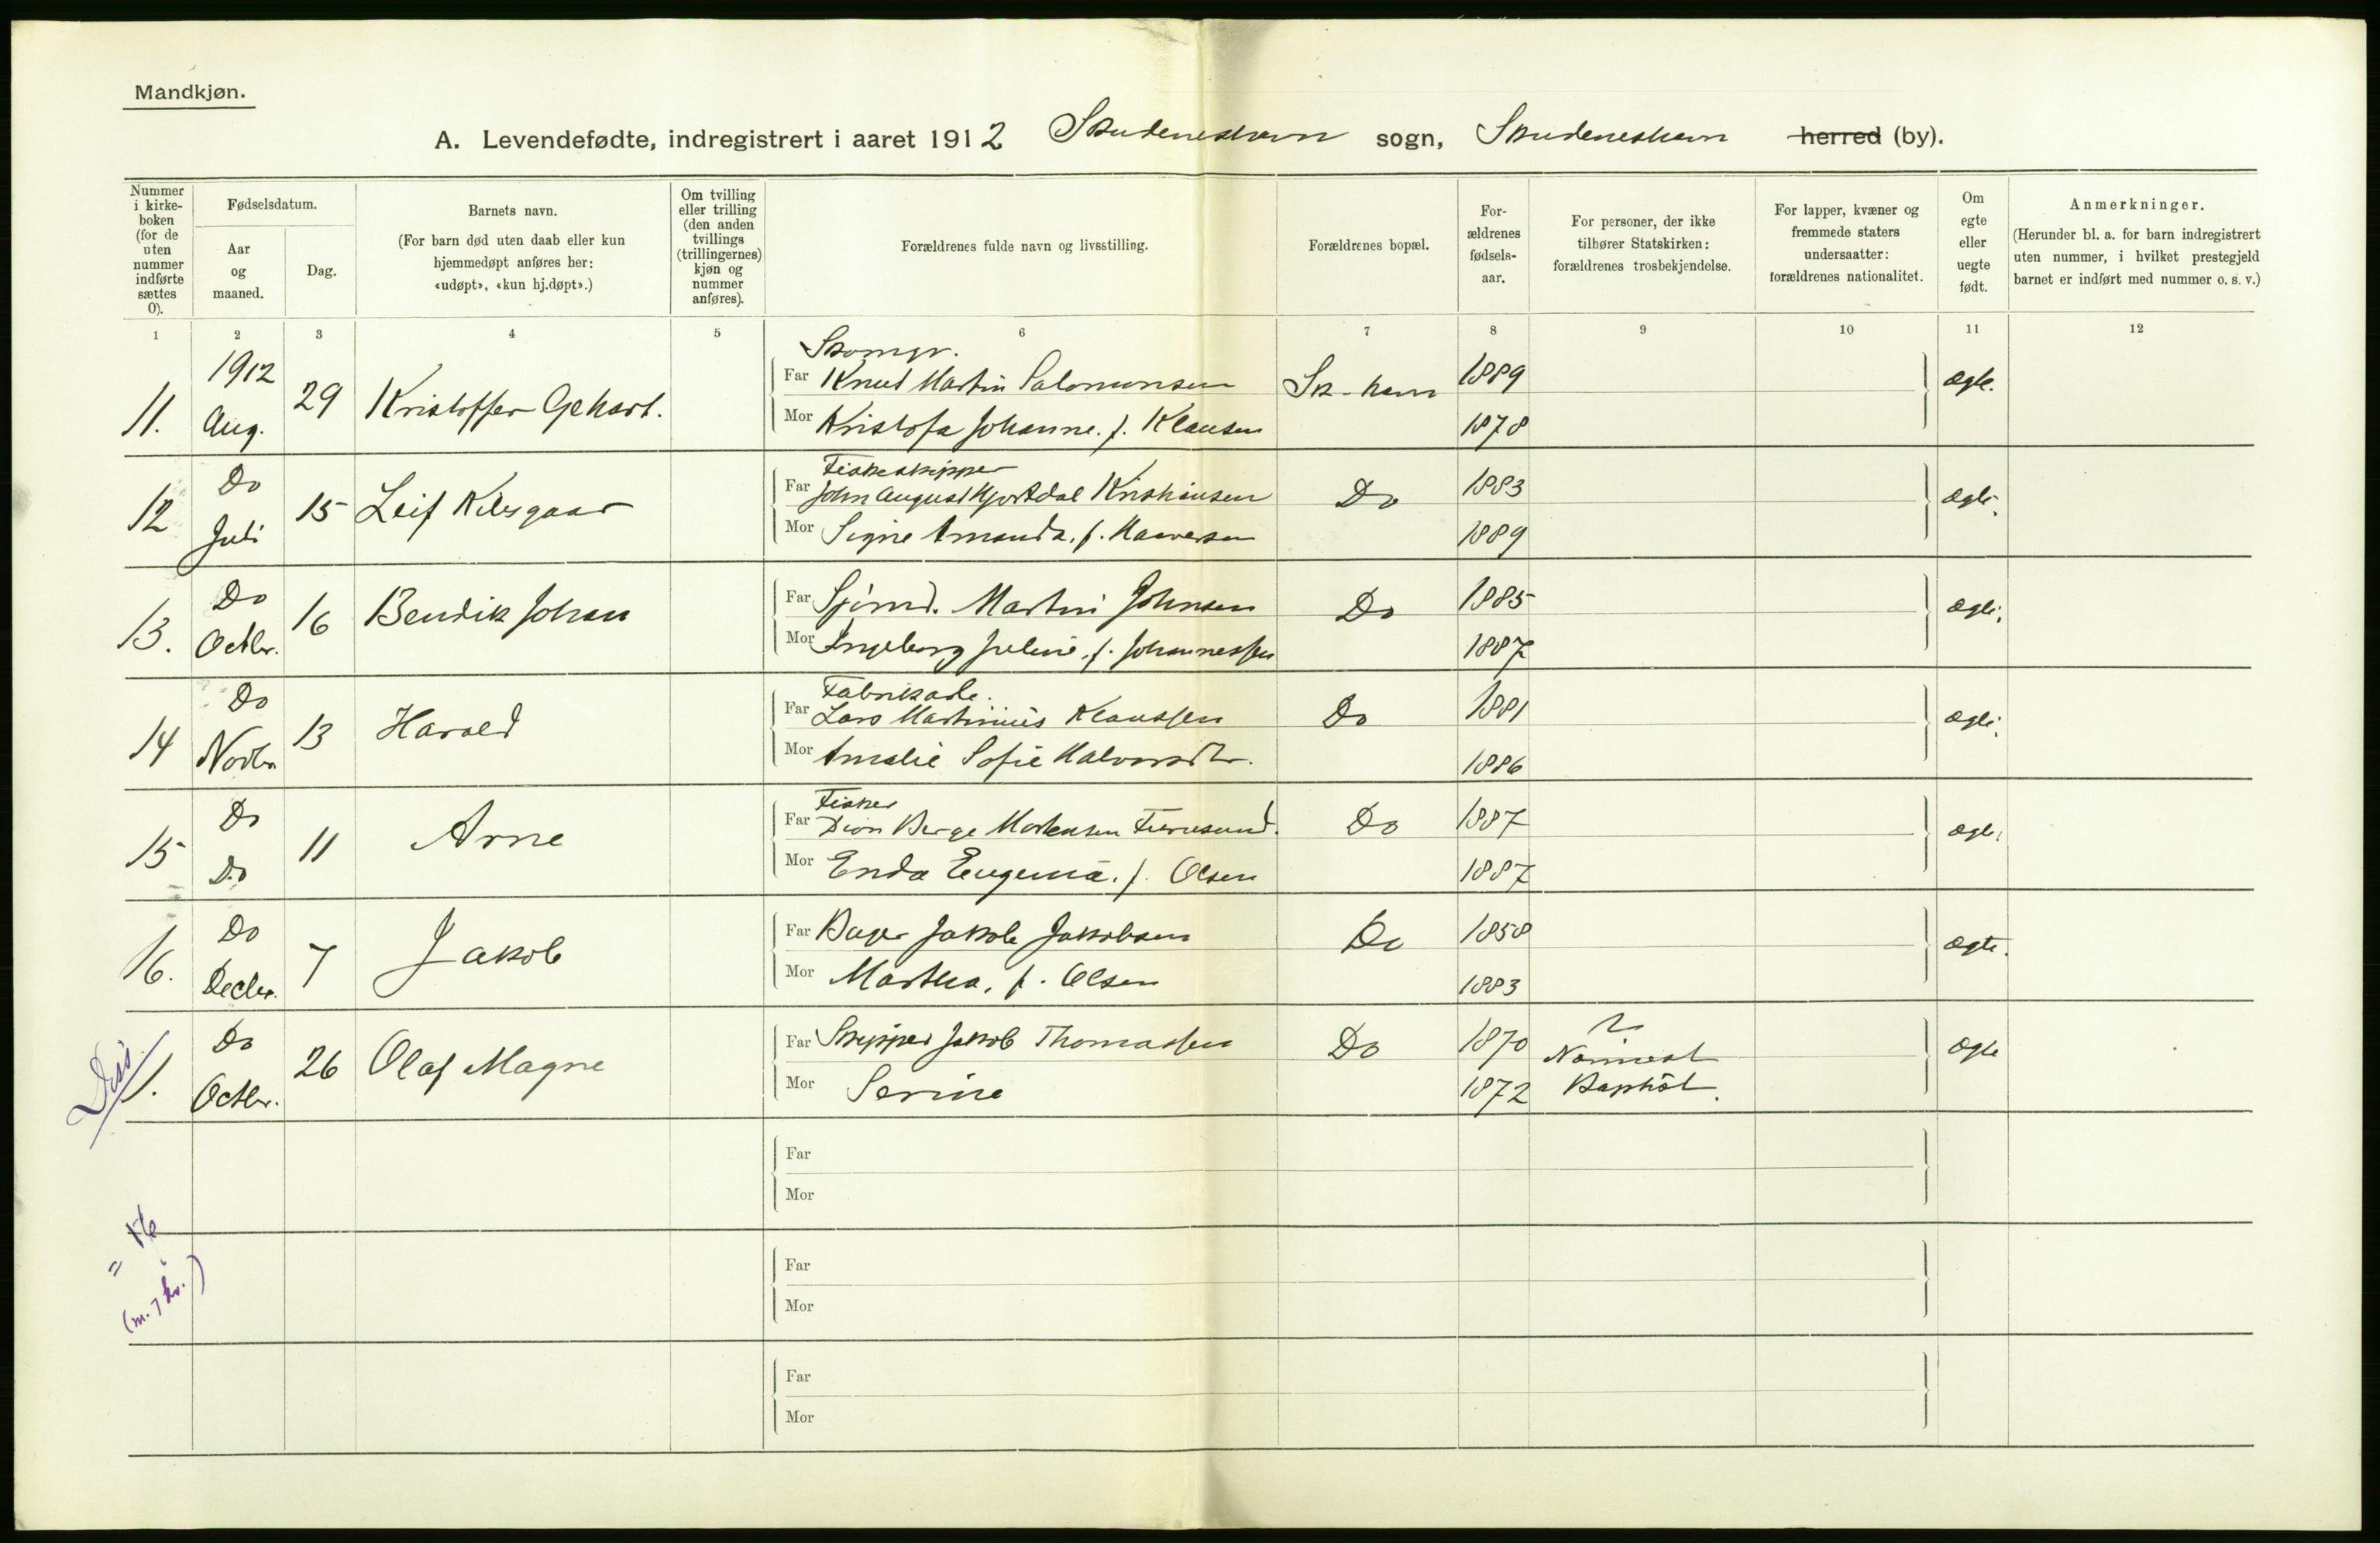 Mandkjøn.
A. Levendefødte, indregistrert i aaret 1912 Skudeneshavn sogn, Skudeneshavn herred (by).
Nummer i kirke-boken (for de uten nummer indførte sættes 0).
Fødselsdatum.
Aar og maaned.
Dag.
Barnets navn.
(For barn død uten daab eller kun hjemmedøpt anføres her: «udøpt», «kun hj.døpt».)
Om tvilling eller trilling (den anden tvillings (trillingernes) kjøn og nummer anføres).
Forældrenes fulde navn og livsstilling.
Forældrenes bopæl.
For-ældrenes fødsels-aar.
For personer, der ikke tilhører Statskirken: forældrenes trosbekjendelse.
For lapper, kvæner og fremmede staters undersaatter: forældrenes nationalitet.
Om egte eller uegte født.
Anmerkninger.
(Herunder bl. a. for barn indregistrert uten nummer, i hvilket prestegjeld barnet er indført med nummer o. s. v.)
1 2 3 4 5 6 7 8 9 10 11 12
Skomgr.
1912 Far Knut Martin Salomonsen Sk-havn 1889 ægte.
11. Aug. 29 Kristoffer Gehart. Mor Kristofa Johanne. f. Klausen 1878
Fiskeskipper
Do Far John August Hjortdal Kristiansen Do 1883 ægte.
12 Juli 15 Leif Mor Signe Amanda. f. 1889
Do Far Sjømd. Martin Johnsen Do 1885 ægte.
13. Octbr. 16 Bendik Johan Mor Ingeborg Juline. f. Johannessen 1887
Fabrikarb.
Do Far Lars Martinius Klaussen Do 1881 ægte.
14 Novbr 13 Harald Mor Amalie Sofie Halvorsdtr. 1886
Fisker
Do Far Berge Mortensen Do 1887 ægte.
15 Do 11 Arne Mor Enda Eugenia. f. Olsen 1887
Do Far Bager Jakob Jakobsen Do 1858 ægte.
16. Decbr. 7 Jakob Mor Martha. f. Olsen 1883
Diss.
Do Far Skipper Jakob Thomassen Do 1870 ægte
1. Octbr. 26 Olaf Magne Mor Serine 1872 Baptist.
Far
Mor
= 16
(m. 7 )
Far
Mor
Far
Mor